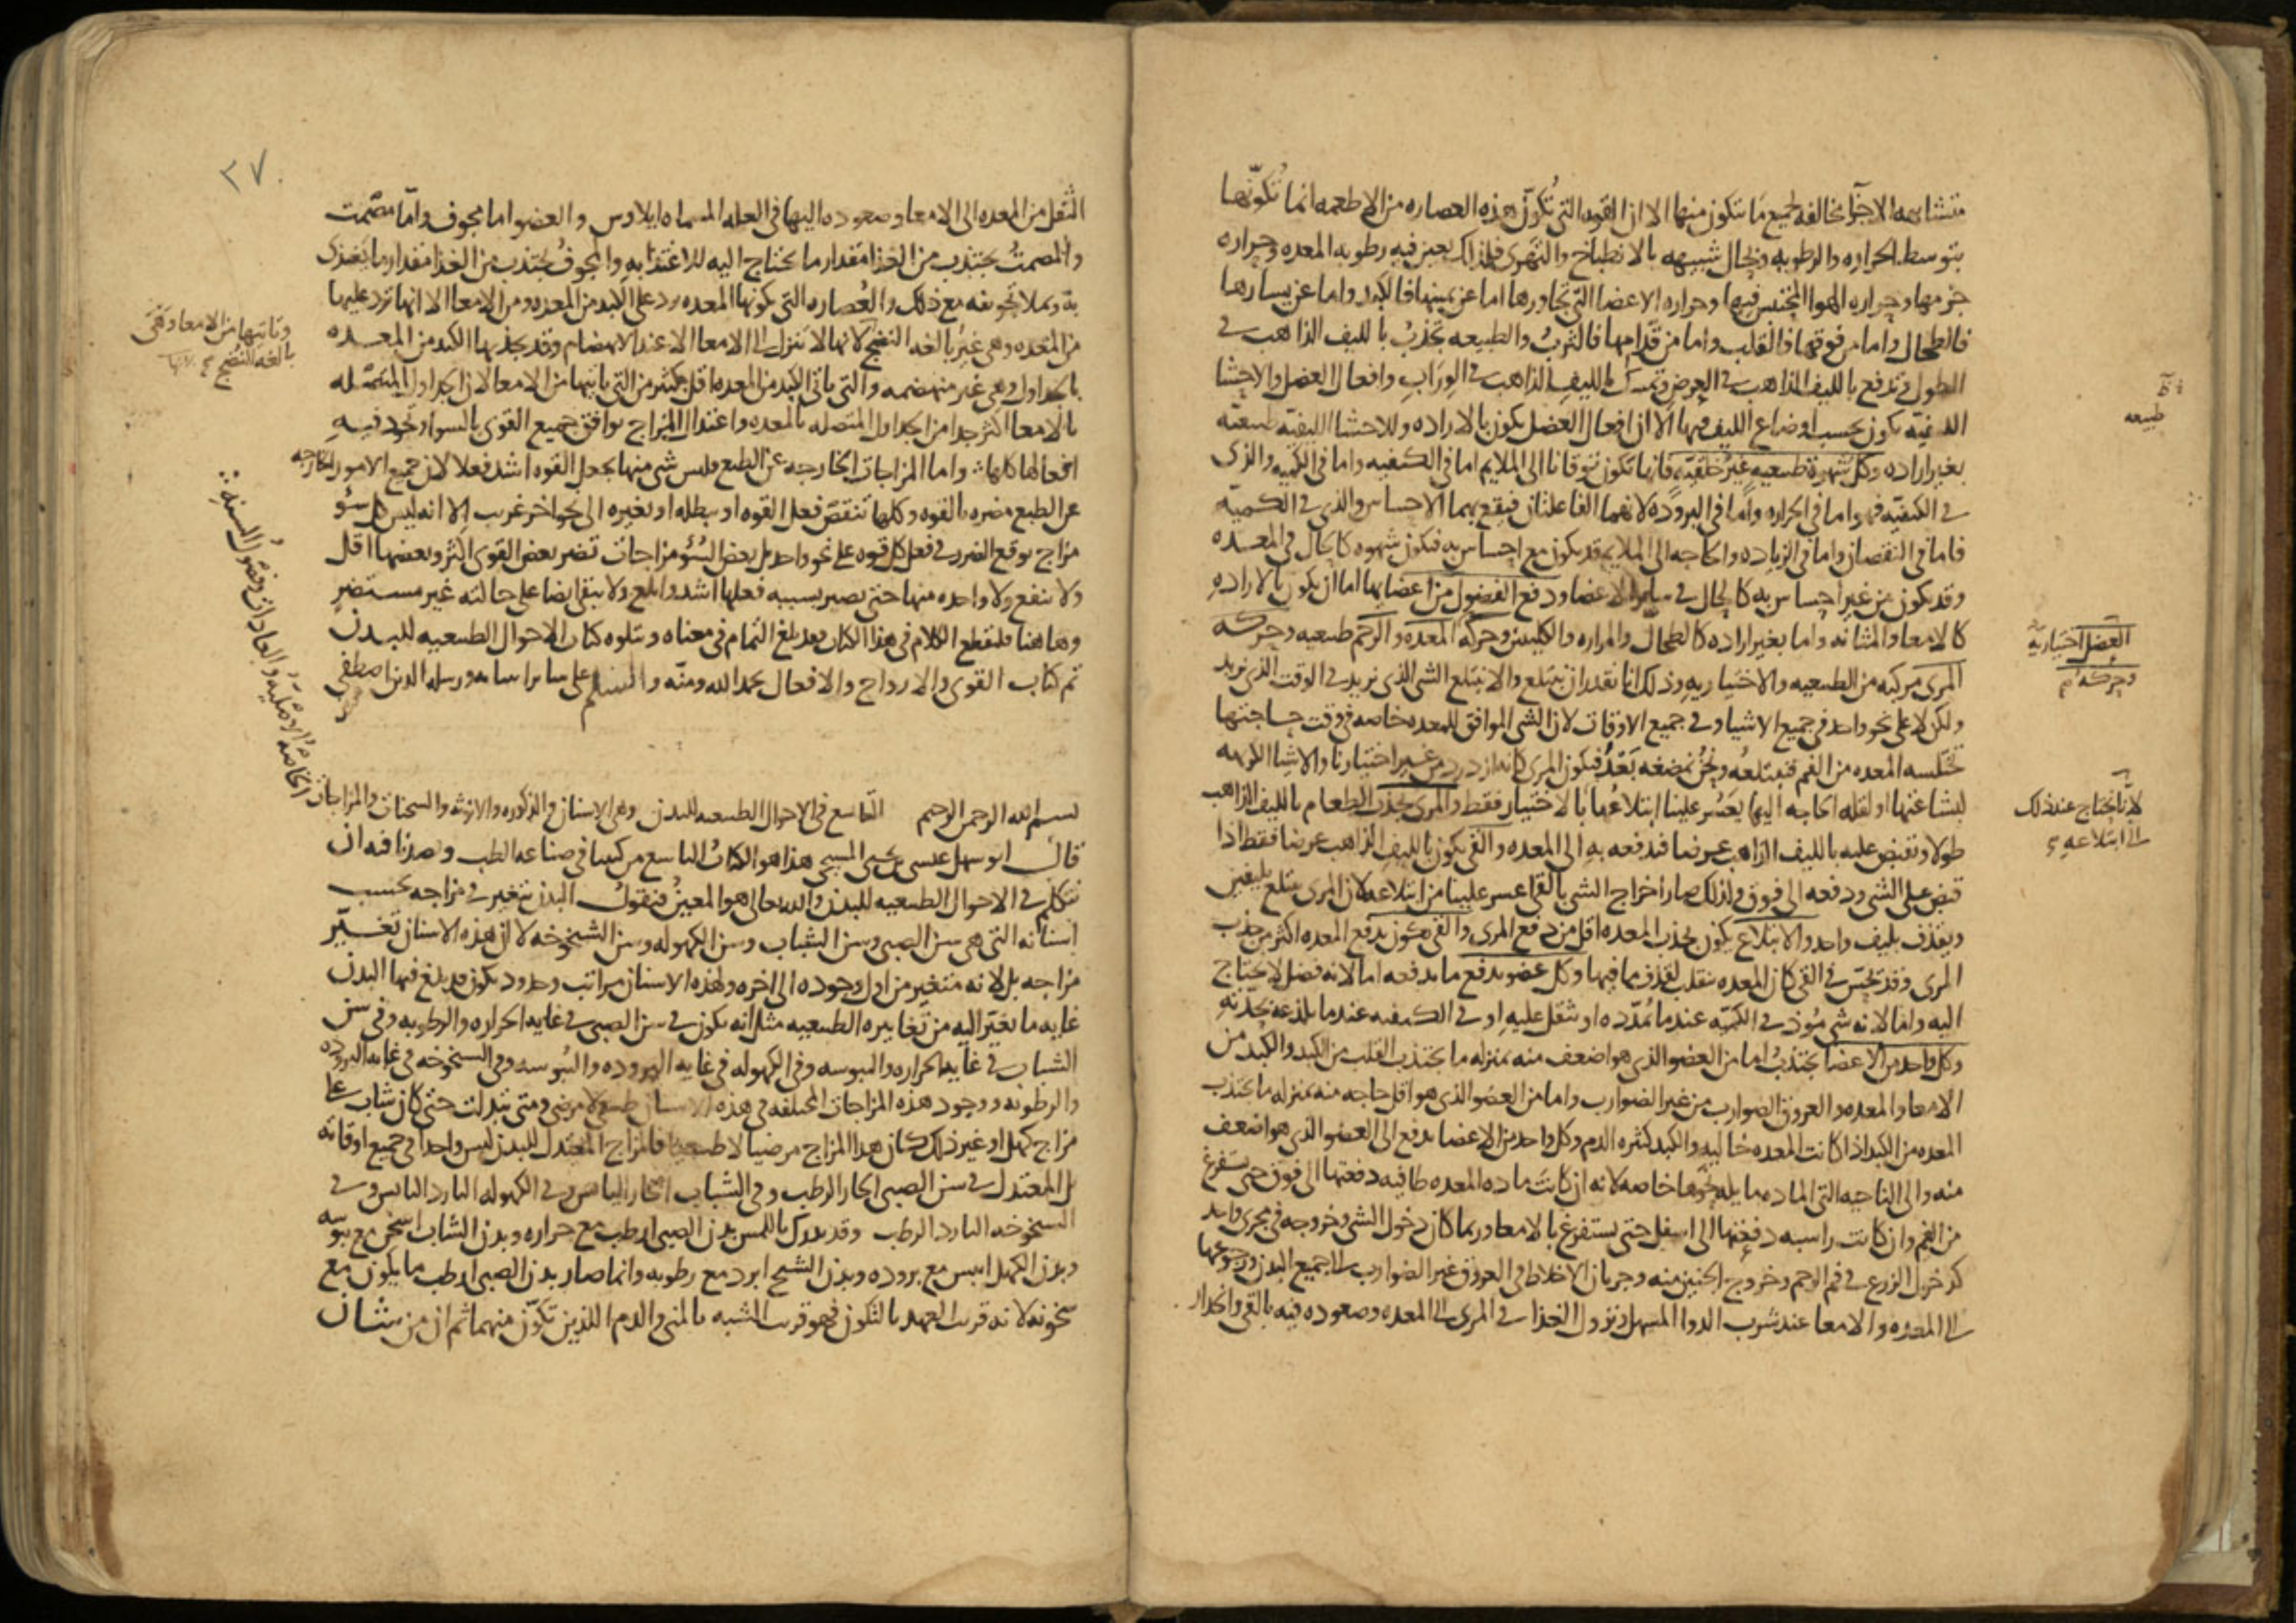 متشابهه الاجزآ مخالفه لجميع ما تتكون منها الا ان القوه التي تكوّن هذه العصاره من الاطعمه انما تُكوّنها
بتوسط الحراره والرطوبه وبحال شبيهه بالانطباخ والتهرى فلذلك يعين فيه رطوبه المعده وحراره
جرمها وحراره الهوا المحتبس فيها وحراره الاعضا التي تجاورها اما عن يمينها فالكبد واما عن يسارها
فالطحال واما من فوقها فالقلب واما من قدامها فالثرب والطبيعه تجذب بالليف الذاهب في
الطول وتدفع بالليف الذاهب في العرض وتمسك بالليف الذاهب في الوراب وافعال العضل والاحشا
الليفيّه يكون بحسب اوضاع الليف فيها الا ان افعال العضل يكون بالاراده وللاحشا الليفيّه طبيعيّه
بغير اراده وكل شهوة طبيعيه غير خلقيّه فانها تكون توقانا الى الملايم اما في الكيفيه واما في الكميه والذي
في الكيفيّه فهو اما في الحراره واما في البروده لانهما الفاعلتان فيقع بهما الاحساس والذي في الكميّه
فاما في النقصان واما في الزياده والحاجه الى الملايم قد يكون مع احساس به فيكون شهوه كالحال في المعده
وقد يكون من غير احساس به كالحال في سائر الاعضا ودفع الفضول من اعضايها اما ان يكون بالاراده
كالامعا والمثانه واما بغير اراده كالطحال والمراره والكليتين وحركه المعده والرحم طبيعيه وحركه
المرى مركبه من الطبيعيه والاختياريه وذلك انا نقدر ان نبتلع والا نبتلع الشي الذي نريد في الوقت الذي نريد
ولكن لا على نحو واحد في جميع الاشيا وفي جميع الاوقات لان الشي الموافق للمعده خاصه في وقت حاجتها
تختلسه المعده من الفم فنبتلعه ونحن نمضغه بَعْدُ فيكون المرى كانه ازدرد من غير اختيارنا والاشيا الكريهه
لبشاعتها او لقله الحاجه اليها يعسر علينا ابتلاعها بالاختيار فقط والمرى يجذب الطعام بالليف الذاهب
طولا وتقبض عليه بالليف الذاهب عرضا فتدفعه به الى المعده والقى يكون بالليف الذاهب عرضا فقط اذا
قبض على الشي ودفعه الى فوق ولذلك صار اخراج الشي بالقى اعسر علينا من ابتلاعه لان المرى يبتلع بليفين
ويقذف بليف واحد والابتلاع يكون بجذب المعده اقل من دفع المرى والقى يكون بدفع المعده اكثر من جذب
المرى وقد تحسّ في القى كان المعده تنقلب لقذف ما فيها وكل عضو يدفع ما يدفعه اما لانه فضل لا يحتاج
اليه واما لانه شي موذ في الكميّه عندما يمدّده او يثقل عليه او في الكيفيه عندما يلذعه بحدّته
وكل واحد من الاعضا يجتذب اما من العضو الذي هو اضعف منه بمنزله ما يجتذب القلب من الكبد والكبد من
الامعا والمعده والعروق الضوارب من غير الضوارب واما من العضو الذي هو اقل حاجه منه بمنزله ما تجتذب
المعده من الكبد اذا كانت المعده خاليه والكبد كثيره الدم وكل واحد من الاعضا يدفع الى العضو الذي هو اضعف
منه والى الناحيه التي الماده مايله نحوها خاصه لانه ان كانت ماده المعده طافيه دفعتها الى فوق حتى تستفرغ
من الفم وان كانت راسبه دفعتها الى اسفل حتى يستفرغ بالامعا وربما كان دخول الشي وخروجه في مجرى واحد
كدخول الزرع في فم الرحم وخروج الجنين منه وجريان الاخلاط في العروق غير الضوارب الى جميع البدن ورجوعها
الى المعده والامعا عند شرب الدوا المسهل ونزول الغذا في المرى الى المعده وصعوده فيه بالقى وانحدار
طبيعه
العضل اختياريّه
وحركه
لانا نحتاج عند ذلك
الى ابتلاعه
٢٧
الثفل من المعده الى الامعا وصعوده اليها في العله المسماه ايلاوس والعضو اما مجوف واما مصمت
والمصمت يجتذب من الغذا مقدار ما يحتاج اليه للاغتذا به والمجوف يجتذب من الغذا مقدار ما يغتذى
به ويملا تجويفه مع ذلك والعصاره التي يكونها المعده يرد على الكبد من المعده ومن الامعا الا انها ترد عليها
من المعده وهي غير بالغه النضج لانها لا تنزل الى الامعا الا عند الانهضام وقد يجذبها الكبد من المعده
بالجداول وهي غير منهضمه والتي ياتي الكبد من المعده اقل بكثير من التي ياتيها من الامعا لان الجداول المتصله
بالامعا اكثر جدا من الجداول المتصله بالمعده واعتدال المزاج يوافق جميع القوى بالسوا وتجود فيه
افعالها كلها واما المزاجات الخارجه عن الطبع فليس شي منها يجعل القوه اشد فعلا لان جميع الامور الخارجه
عن الطبع مضره بالقوه وكلها تنقص فعل القوه او يبطله او يغيره الى نحو اخر غريب الا انه ليس كل سؤ
مزاج يوقع الضرر في فعل كل قوه على نحو واحد بل بعض السُؤ مزاجات تضر بعض القوى اكثر وبعضها اقل
ولا ينفع ولا واحده منها حتى يصير بسببه فعلها اشد وابلغ ولا يبقى ايضا على حالته غير مستضر
وهاهنا فلنقطع الكلام في هذا الكتاب بعد بلغ التمام في معناه ويتلوه كتاب الاحوال الطبيعيه للبدن
تم كتاب القوى والارواح والافعال بحمد الله ومنّه والسلم على ساير انبيايه ورسله الذين اصطفى
بسم الله الرحمن الرحيم التاسع في الاحوال الطبيعيه للبدن وهي الاسنان والذكوره والانوثه والسحنات والمزاجات
قال ابو سهل عيسى بن يحيى المسيحي هذا هو الكتاب التاسع من كتبنا في صناعه الطب وقصدنا فيه ان
نتكلم في الاحوال الطبيعيه للبدن والله تعالى هو المعين فنقول البدن يتغير في مزاجه بحسب
اسنانه التي هي سن الصبى وسن الشباب وسن الكهوله وسن الشيخوخه لا لان هذه الاسنان تغيّر
مزاجه بل لانه متغير من اول وجوده الى اخره ولهذه الاسنان مراتب وحدود يكون قد بلغ فيها البدن
غايه ما يغيّر اليه من تغايره الطبيعيه مثل انه يكون في سن الصبى في غايه الحراره والرطوبه وفي سن
الشباب في غايه الحراره واليبوسه وفي الكهوله في غايه البروده واليبوسه وفي الشيخوخه في غايه البروده
والرطوبه ووجود هذه المزاجات المختلفه في هذه الاسنان طبيعي لا مرضى ومتى تبدلت حتى كان شاب على
مزاج كهل او غير ذلك كان هذا المزاج مرضيا لا طبيعيا فالمزاج المعتدل للبدن ليس واحدا في جميع اوقاته
بل المعتدل في سن الصبى الحار الرطب وفي الشباب الحار اليابس وفي الكهوله البارد اليابس وفي
الشيخوخه البارد الرطب وقد يدرك باللمس بدن الصبى ارطب مع حراره وبدن الشاب اسخن مع يبوسه
وبدن الكهل ايبس مع بروده وبدن الشيخ ابرد مع رطوبه وانما صار بدن الصبى ارطب ما يكون مع
سخونه لانه قريب العهد بالتكون فهو قريب الشبه بالمنى والدم اللذين تكوّن منهما ثم ان من شان
وتاتيها من الامعا وهى
بالغه النضج
الخاصّه والامتليه والعادات وفصول السنه